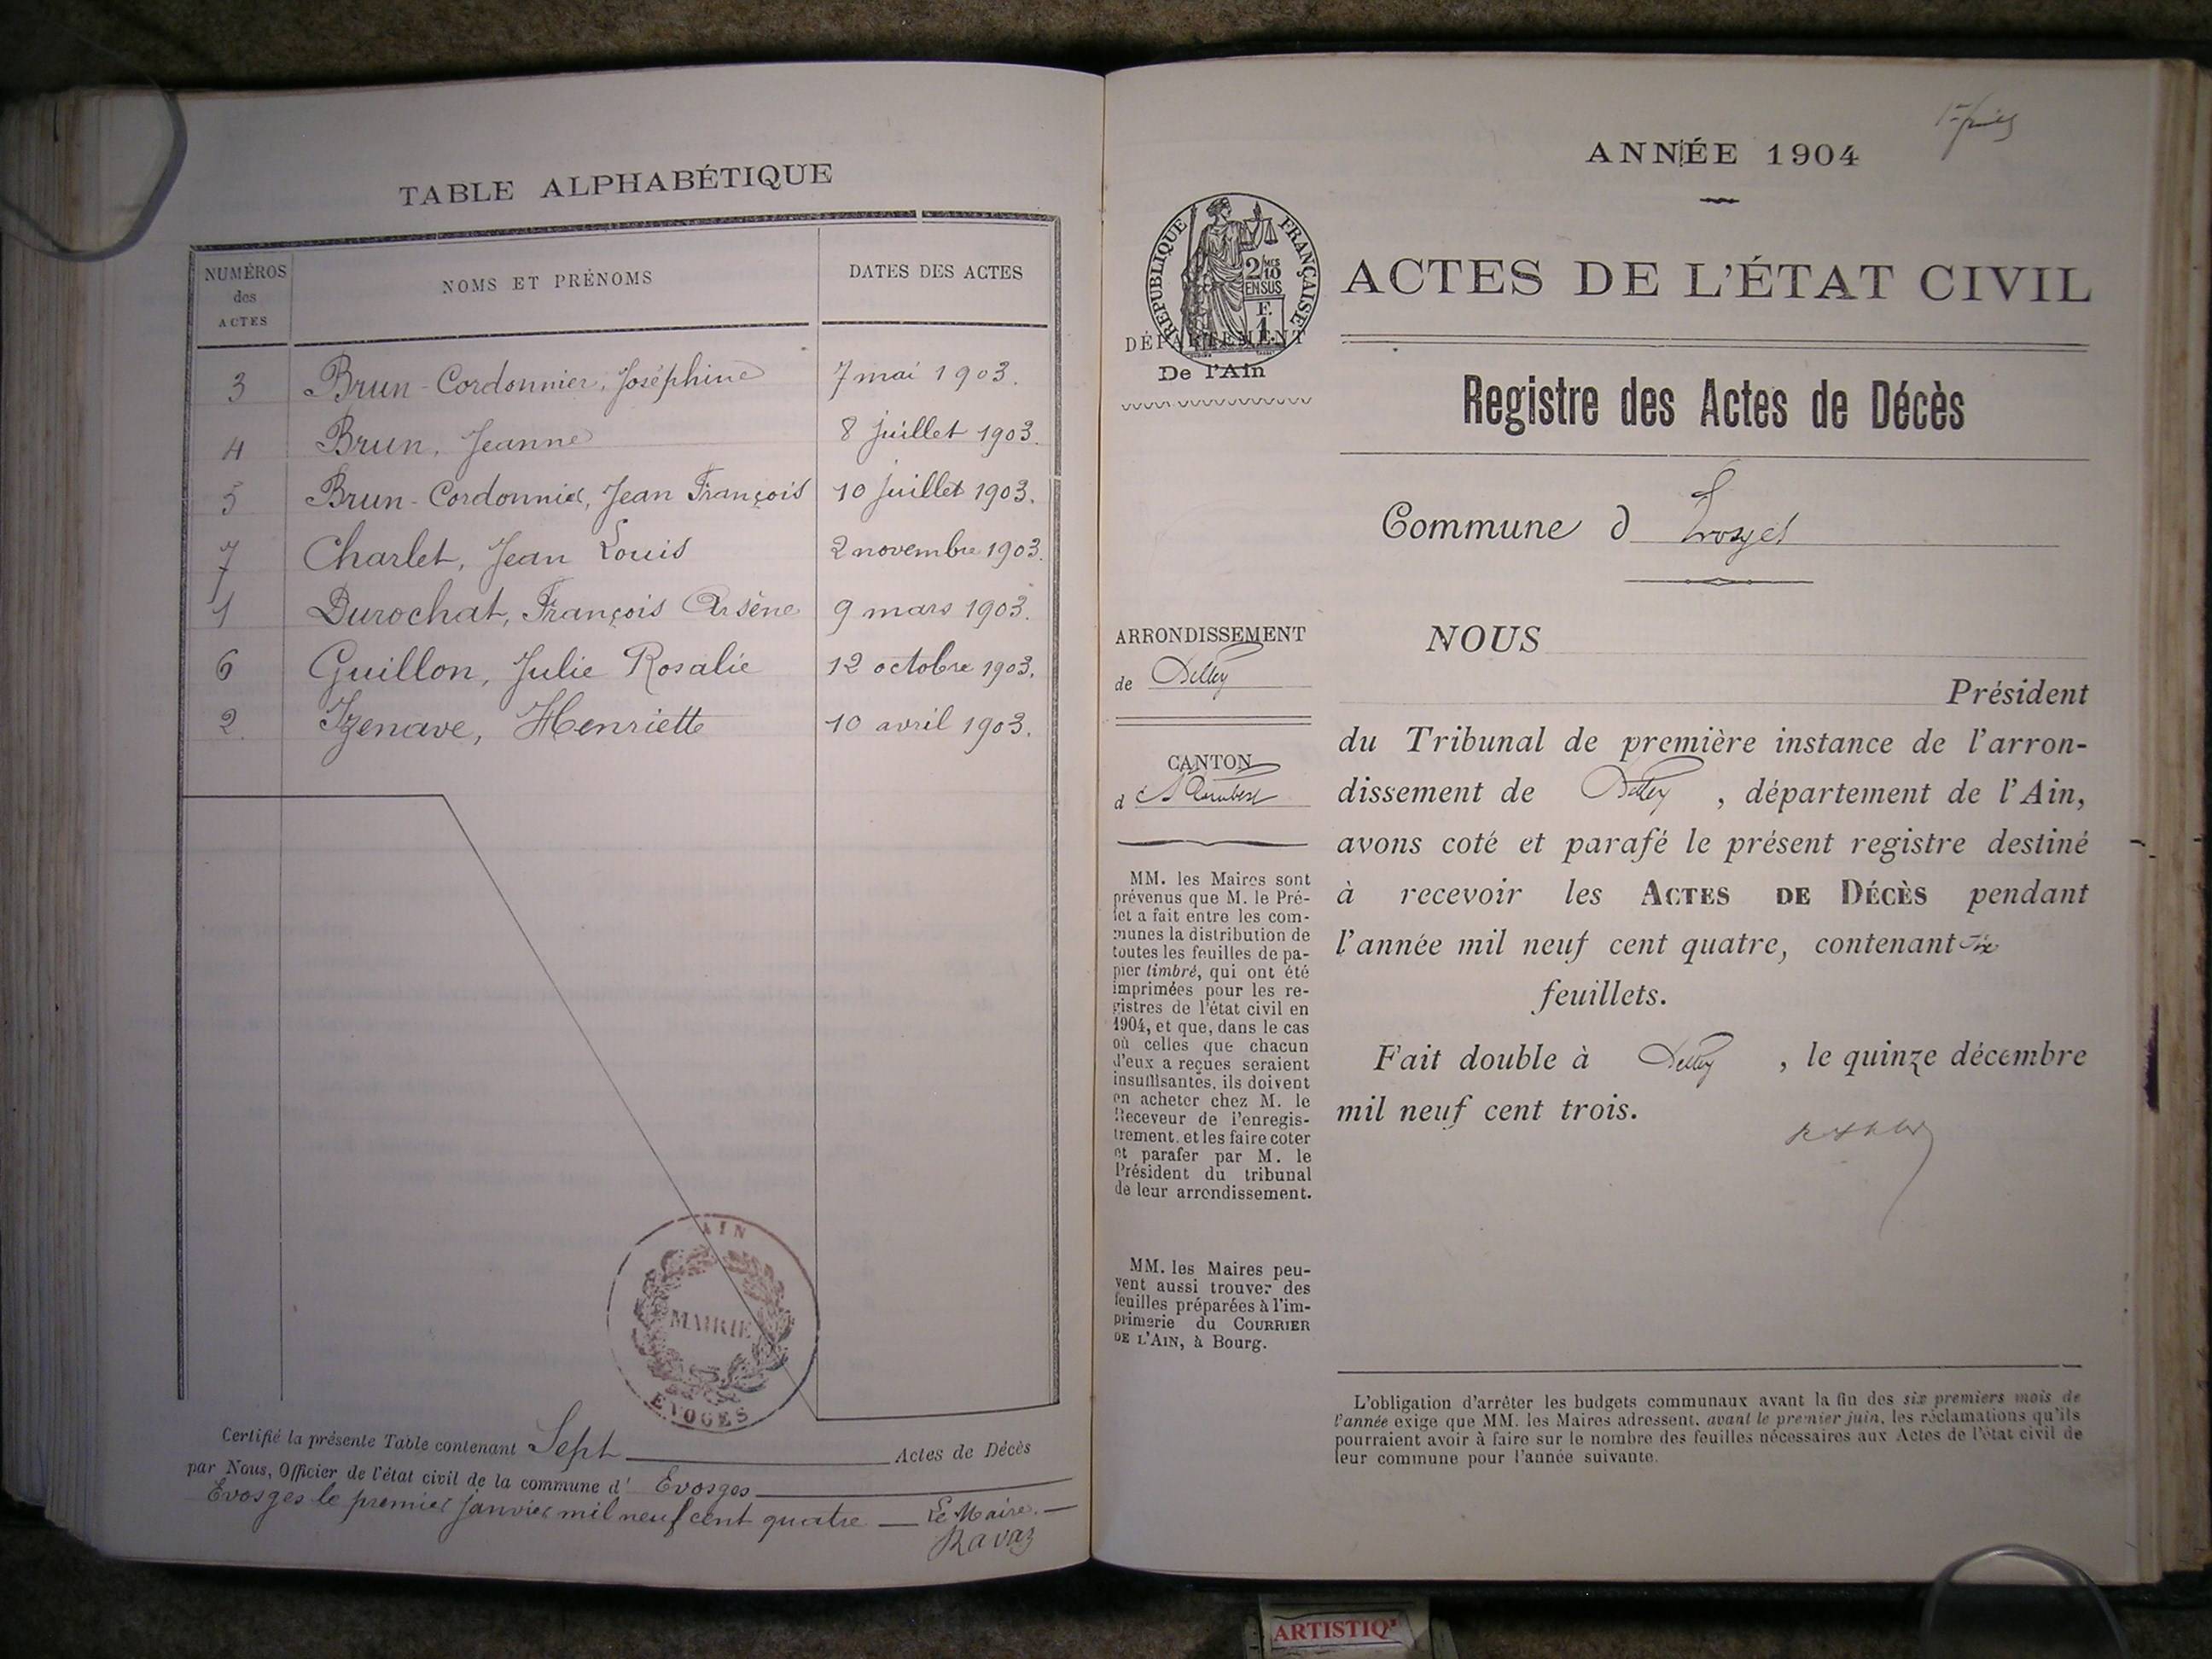 TABLE ALPHABÉTIQUE
NUMÉROS des ACTES
NOMS ET PRÉNOMS
DATES DES ACTES
3 Brun-Cordonnier, Joséphine 7 mai 1903.
4 Brun, Jeanne 8 juillet 1903.
5 Brun-Cordonnier, Jean François 10 juillet 1903.
7 Charlet, Jean Louis 2 novembre 1903.
1 Durochat, François Arsène 9 mars 1903.
6 Guillon, Julie Rosalie 12 octobre 1903.
2. Izenave, Henriette 10 avril 1903.
AIN
MAIRIE
EVOGES
Certifié la présente Table contenant Sept Actes de Décès
par Nous, Officier de l'état civil de la commune d' Evosges
Evosges le premier janvier mil neuf cent quatre — Le Maire. —
Ravaz
ANNÉE 1904
RÉPUBLIQUE FRANÇAISE
2/10 MES
EN SUS
F. 1.
DÉPARTEMENT
De l'Ain
ACTES DE L'ÉTAT CIVIL
Registre des Actes de Décès
Commune d Evosges
ARRONDISSEMENT
de Belley
CANTON
d St Rambert
MM. les Maires sont
prévenus que M. le Pré-
fet a fait entre les com-
munes la distribution de
toutes les feuilles de pa-
pier timbré, qui ont été
imprimées pour les re-
gistres de l'état civil en
1904, et que, dans le cas
où celles que chacun
d'eux a reçues seraient
insuffisantes, ils doivent
en acheter chez M. le
Receveur de l'enregis-
trement, et les faire coter
et parafer par M. le
Président du tribunal
de leur arrondissement.
MM. les Maires peu-
vent aussi trouver des
feuilles préparées à l'im-
primerie du COURRIER
DE L'AIN, à Bourg.
NOUS
Président
du Tribunal de première instance de l'arron-
dissement de Belley, département de l'Ain,
avons coté et parafé le présent registre destiné
à recevoir les ACTES DE DÉCÈS pendant
l'année mil neuf cent quatre, contenant
feuillets.
Fait double à Belley, le quinze décembre
mil neuf cent trois.
L'obligation d'arrêter les budgets communaux avant la fin des six premiers mois de
l'année exige que MM. les Maires adressent, avant le premier juin, les réclamations qu'ils
pourraient avoir à faire sur le nombre des feuilles nécessaires aux Actes de l'état civil de
leur commune pour l'année suivante.
ARTISTIQ